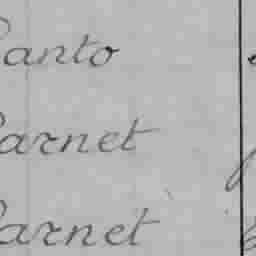 anto
arnet
arnet